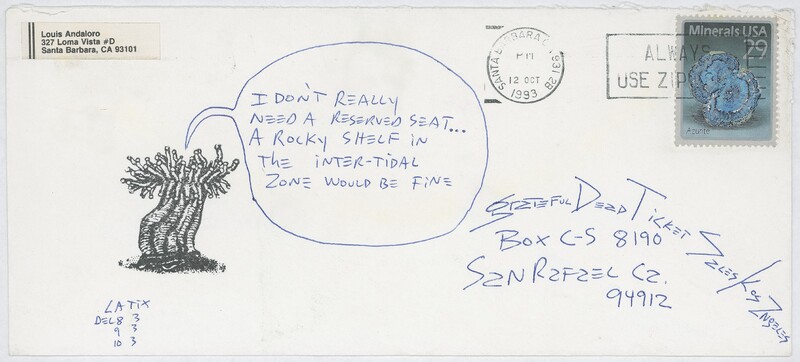 Louis Andaloro
327 Loma Vista #D
Santa Barbara, CA 93101
SANTA BARBARA CA 931 2B
PM
12 OCT
1993
ALWAYS
USE ZIP
Minerals USA
29
Azurite
I DON'T REALLY
NEED A RESERVED SEAT...
A ROCKY SHELF IN
THE INTER-TIDAL
ZONE WOULD BE FINE
GRATEFUL DEAD TICKET SALES/LOS ANGELES
BOX C-S 8190
SAN RAFAEL CA.
94912
LA TIX
DEC 8 3
9 3
10 3